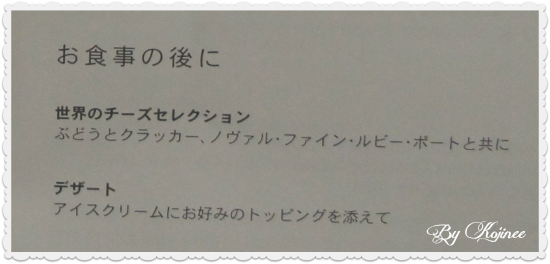 お食事の後に
世界のチーズセレクション
ぶどうとクラッカー、ノヴァル・ファイン・ルビー・ポートと共に
デザート
アイスクリームにお好みのトッピングを添えて
By Kojinee